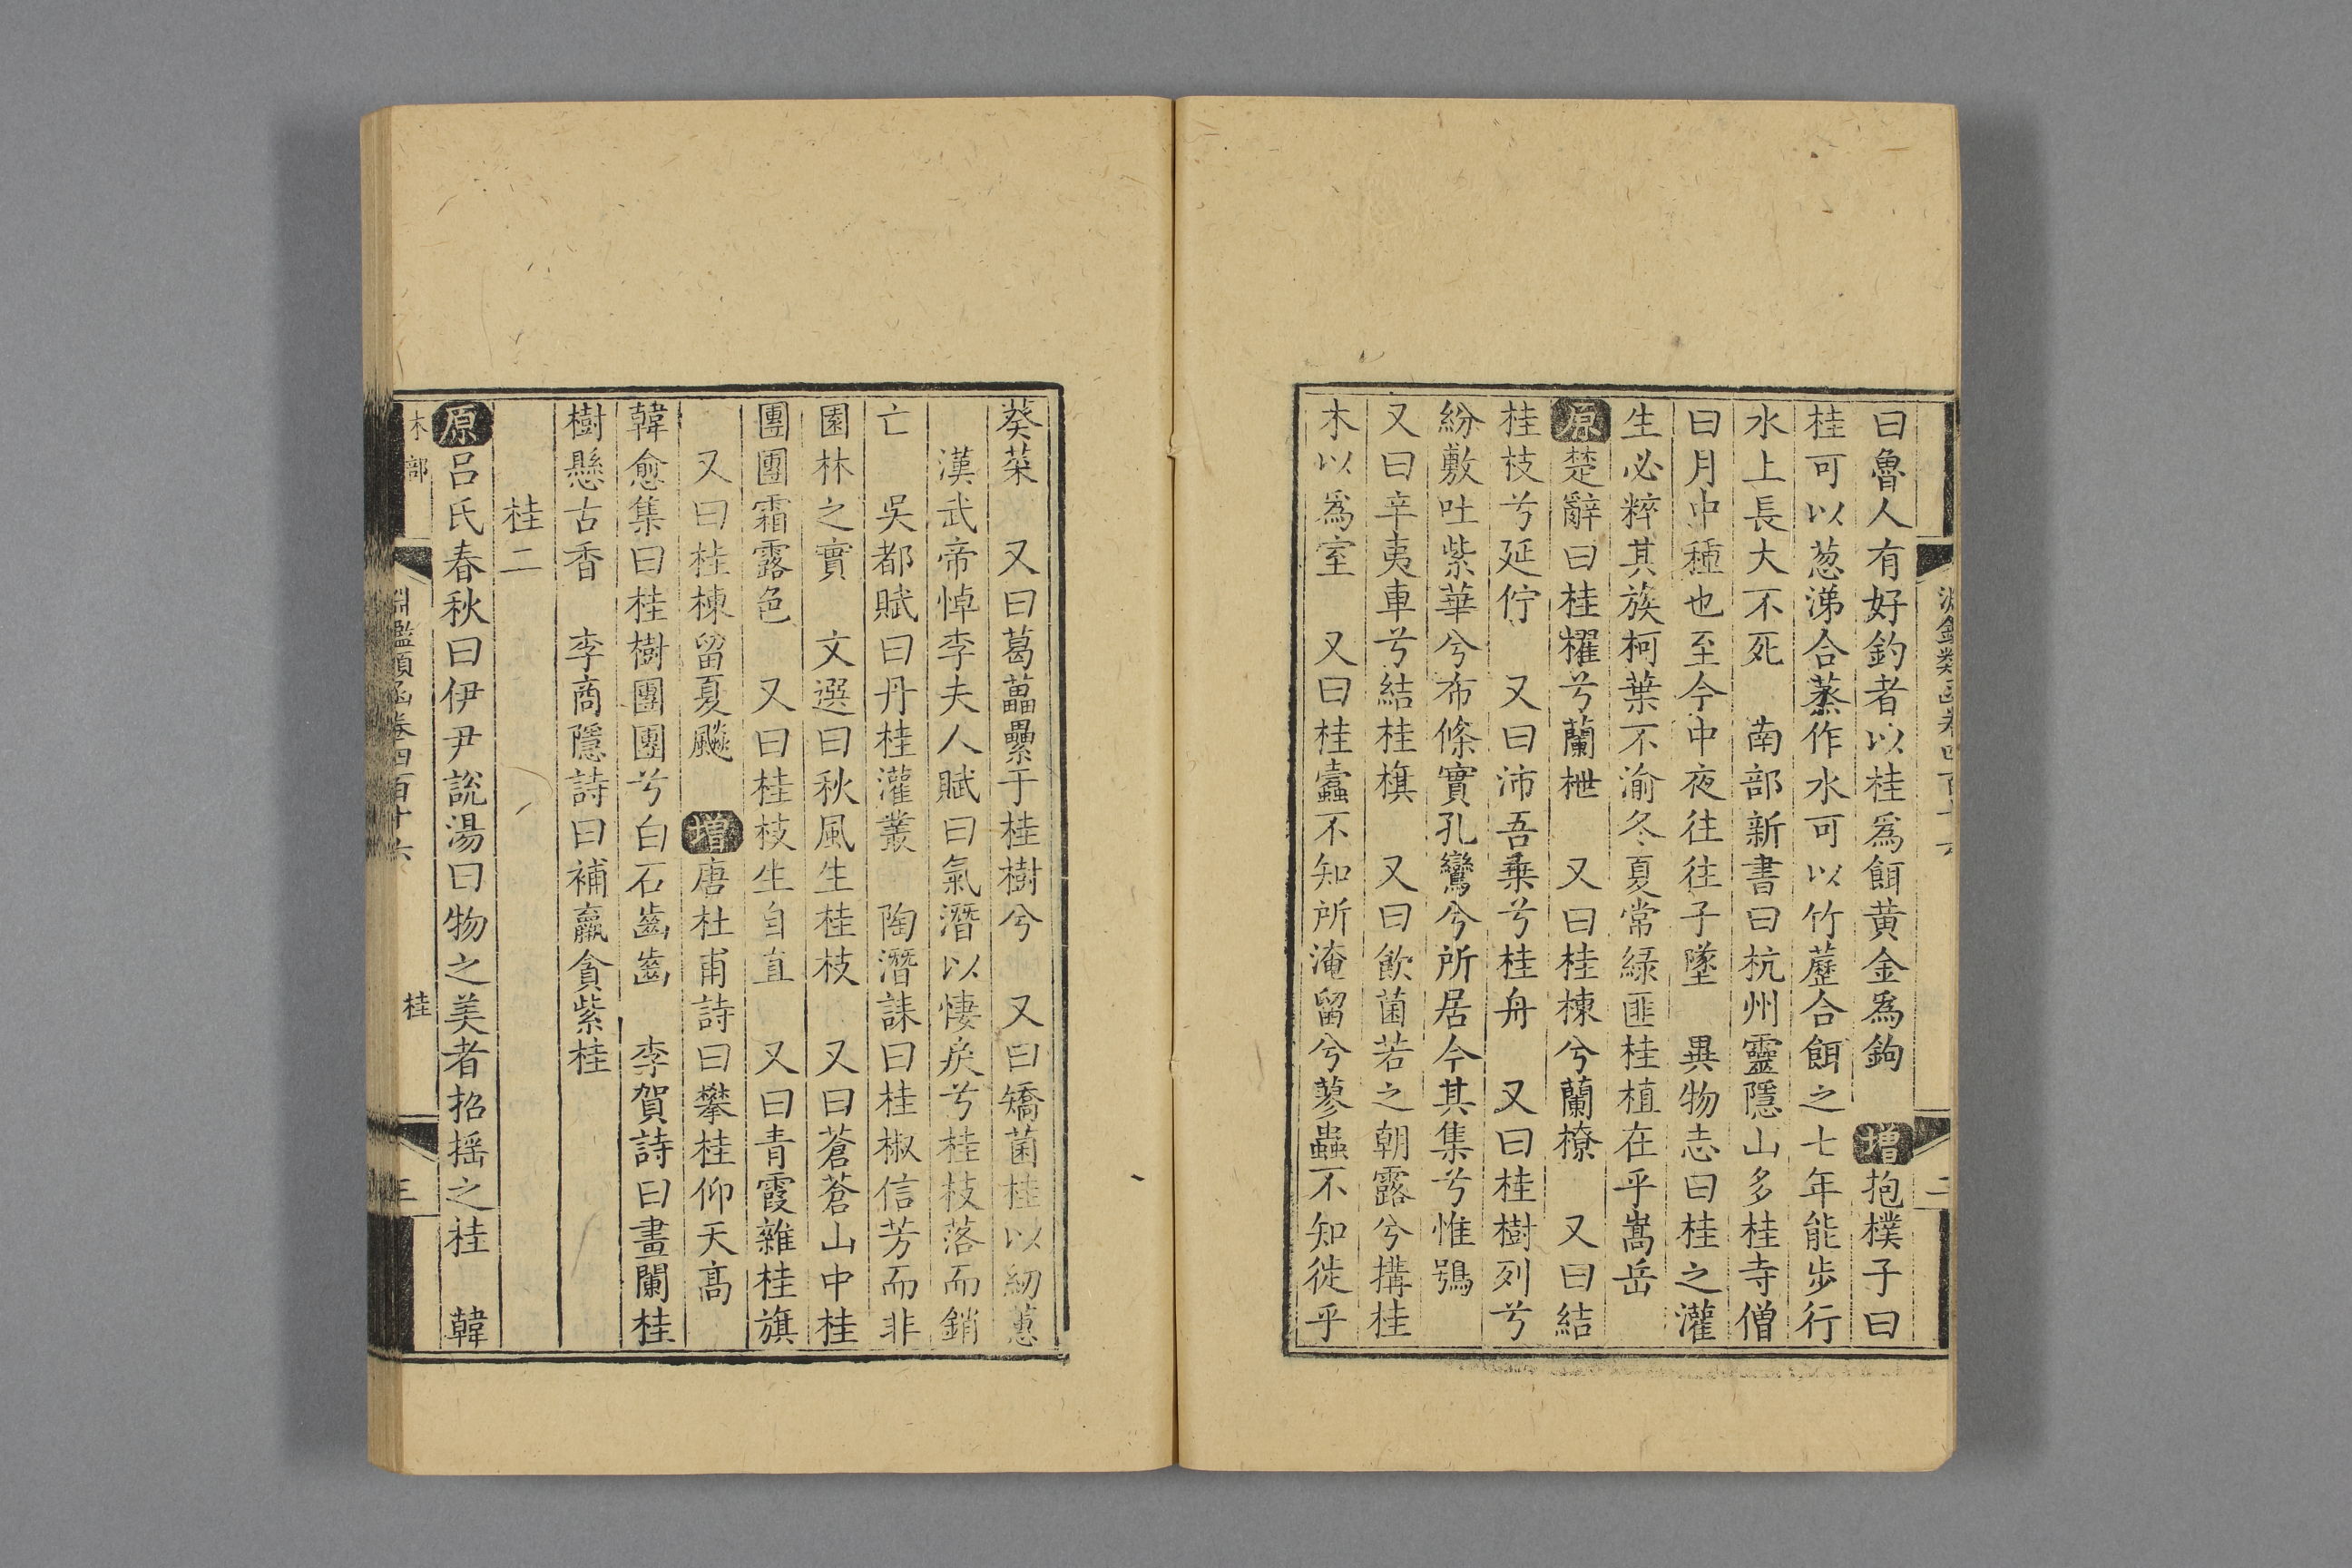 曰魯人有好釣者以桂爲餌黄金爲鉤 增抱樸子曰
桂可以葱涕合蒸作水可以竹蘆合餌之七年能步行
水上長大不死 南部新書曰杭州靈隱山多桂寺僧
曰月中種也至今中夜往往子墜 異物志曰桂之灌
生必粹其族柯葉不渝冬夏常緑匪桂植在乎嵩岳
原楚辭曰桂櫂兮蘭枻 又曰桂棟兮蘭橑 又曰結
桂枝兮延佇 又曰沛吾乗兮桂舟 又曰桂樹列兮
紛敷吐紫華兮布條實孔鸞兮所居今其集兮惟鴞
又曰辛夷車兮結桂旗 又曰飲菌若之朝露兮搆桂
木以爲室 又曰桂蠹不知所淹留兮蓼蟲不知徙乎
葵菜 又曰葛藟纍于桂樹兮 又曰矯菌桂以紉蕙
漢武帝悼李夫人賦曰氣潛以悽戾兮桂枝落而銷
亡 吳都賦曰丹桂灌叢 陶潛誄曰桂椒信芳而非
園林之實 文選曰秋風生桂枝 又曰蒼蒼山中桂
團團霜露色 又曰桂枝生自直 又曰青霞雜桂旗
又曰桂棟留夏飈 增唐杜甫詩曰攀桂仰天高
韓愈集曰桂樹團團兮白石齒齒 李賀詩曰畫闌桂
樹懸古香 李商隱詩曰補羸貪紫桂
桂二
原吕氏春秋曰伊尹説湯曰物之美者招摇之桂 韓
木部 淵鑑類函卷四百十六 桂 三